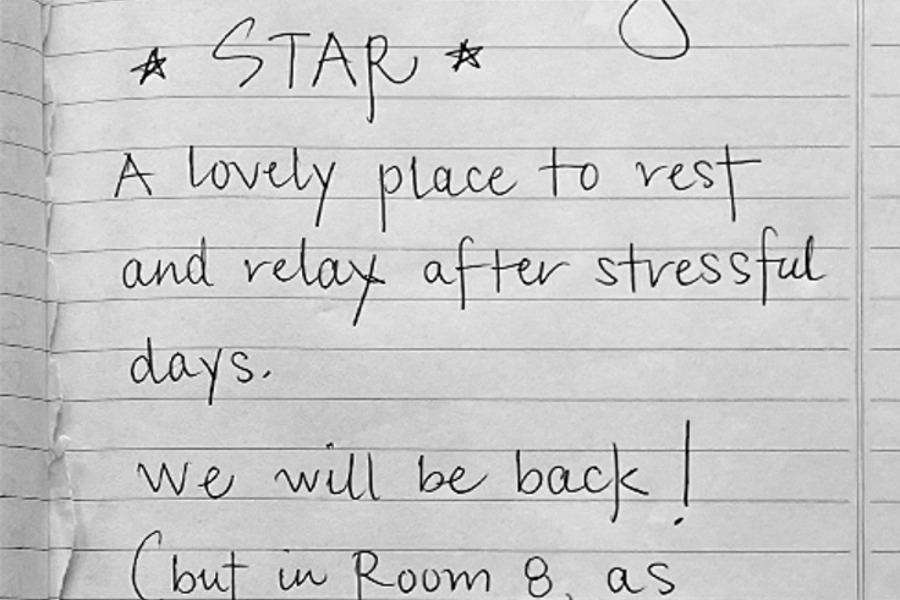 ★ STAR ★
A lovely place to rest
and relax after stressful
days.
We will be back!
(but in Room 8, as